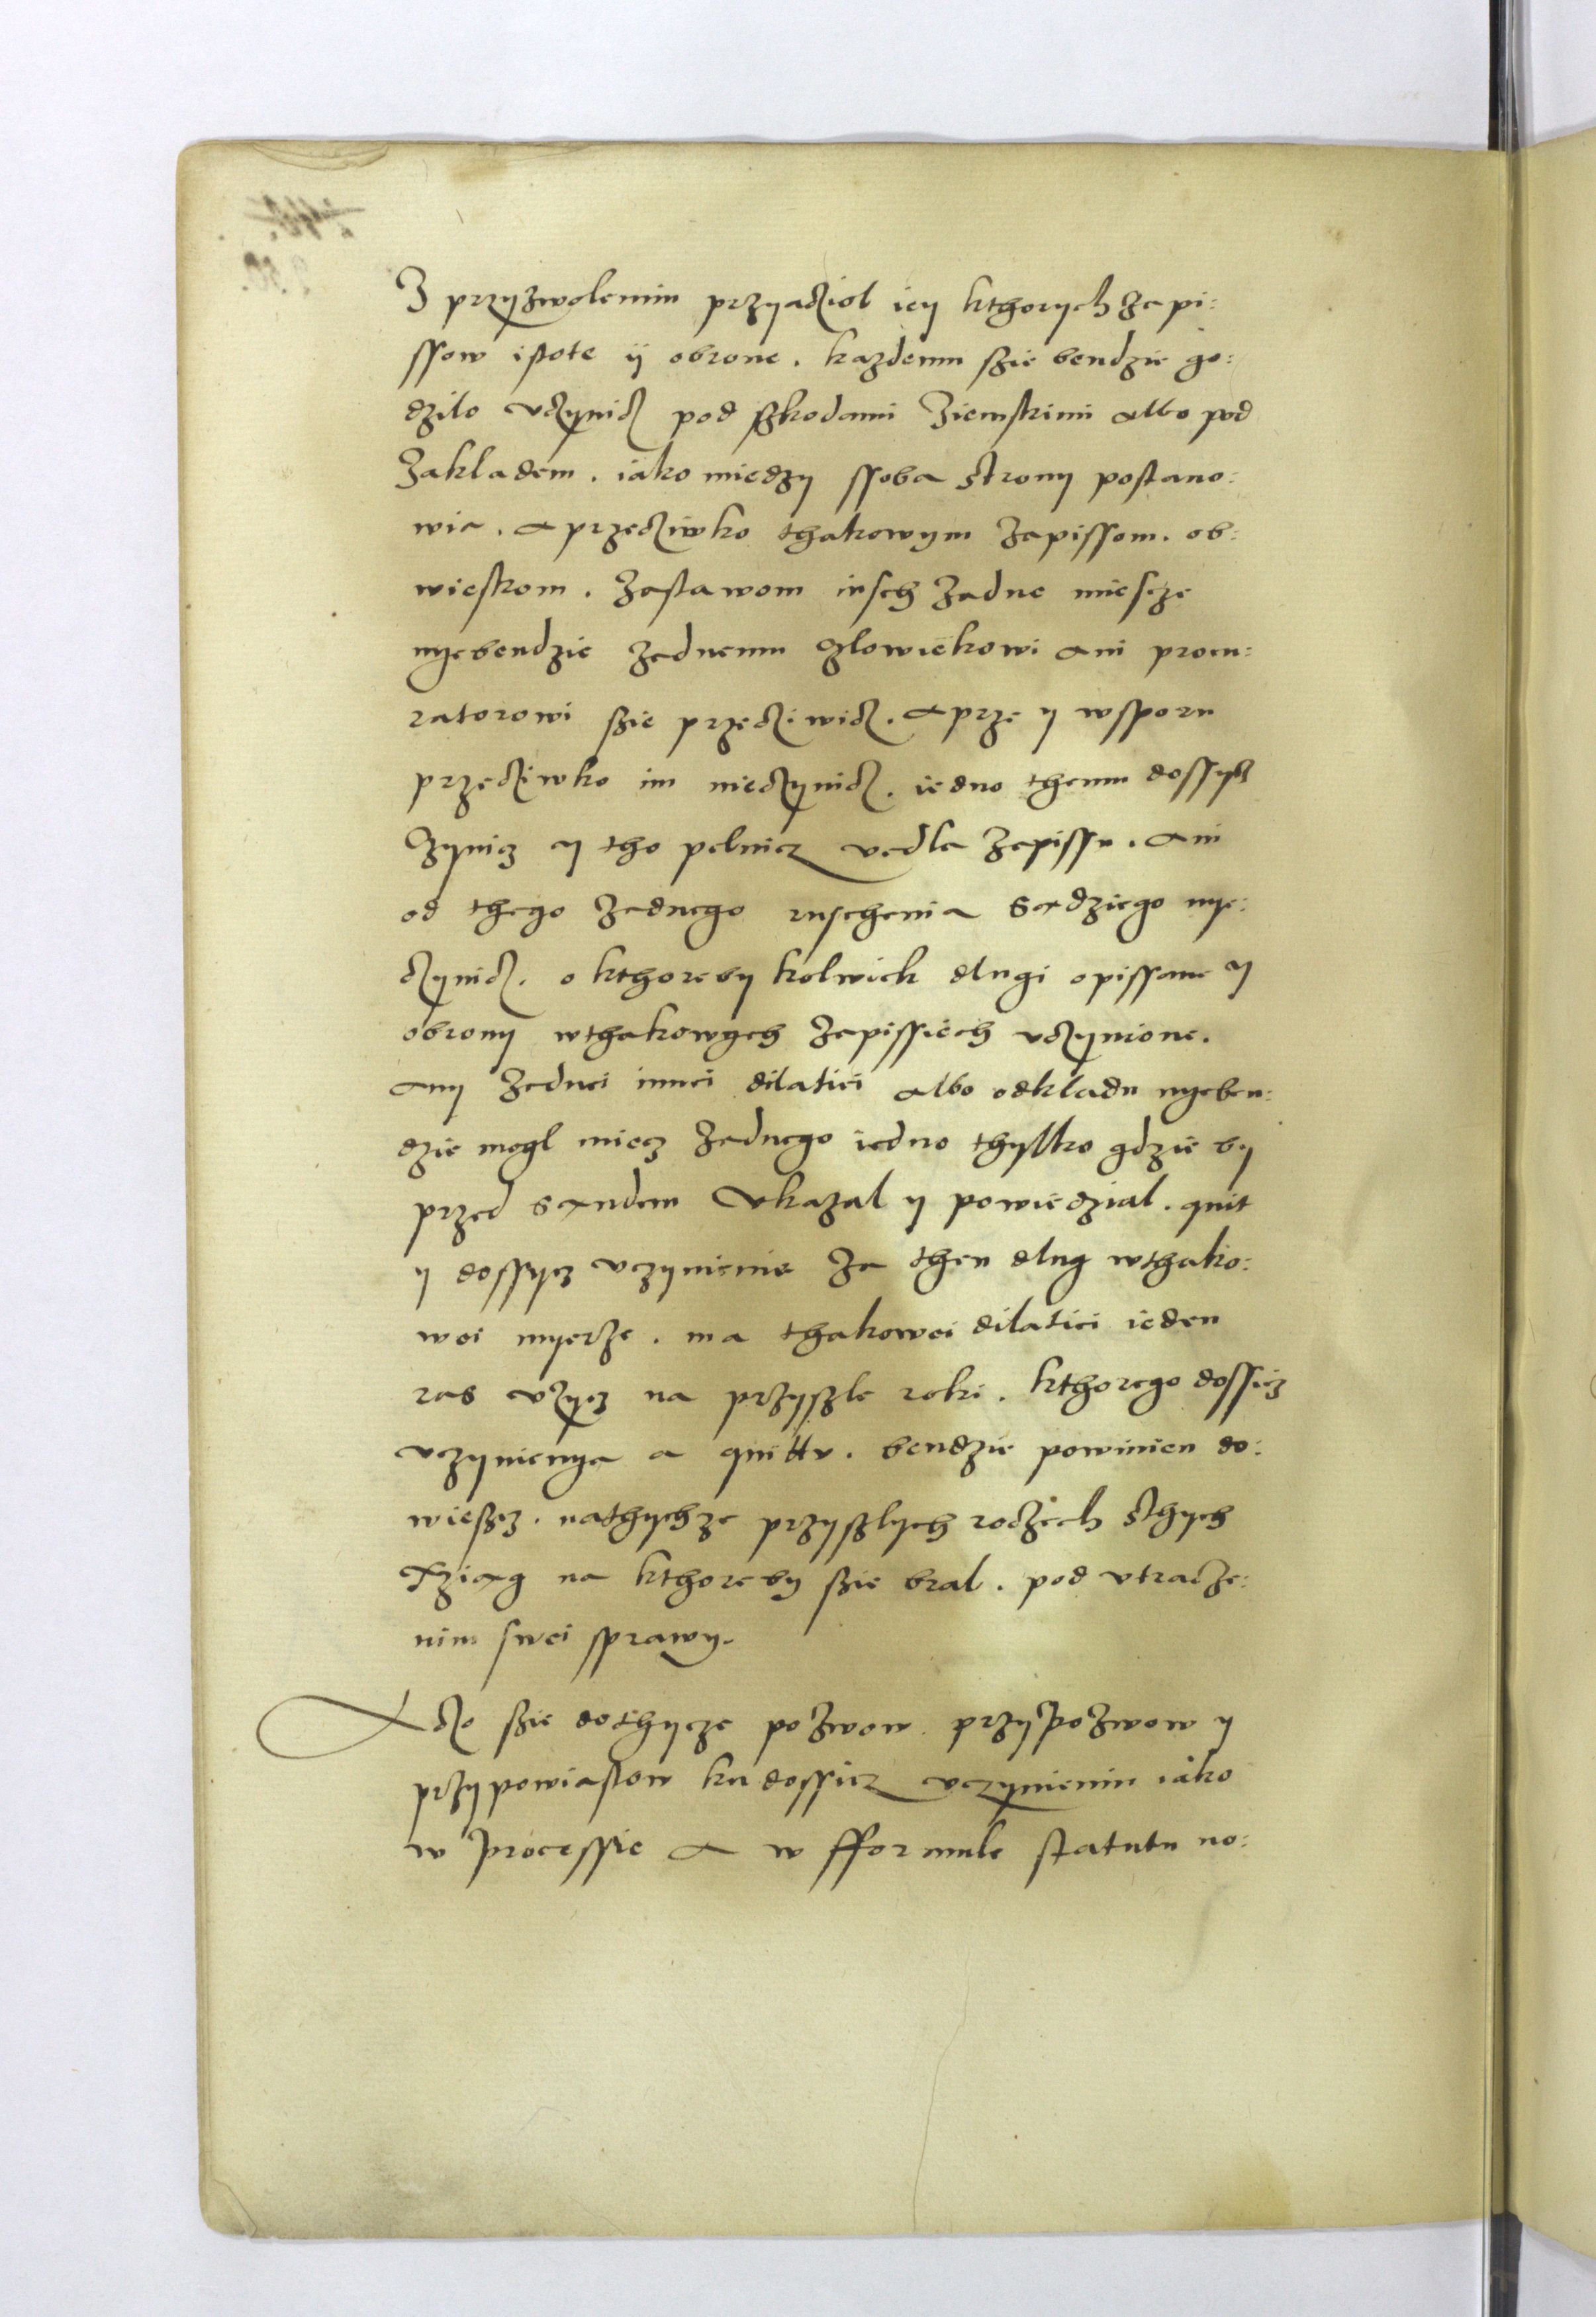 Z przyzwolenim przyacziol iey kthorych zapi:
ssow istote ÿ obrone. kazdemu szie bendzie go:
dzilo uczynicz pod szkodami Ziemskimi albo pod
Zakladem. iako miedzy ssoba strony postano:
wia. a przecziwko thakowym zapissom. ob:
wieskom. zastawom insch zadne miescze
nyebendzie zadnemu czlowiekowi ani procu:
ratorowi szie przecziwicz. a prze y wsporu
przecziwko im nieczynicz. iedno themu dossycz
czynicz y tho pelnicz vedla zapissu. ani
od thego zadnego ruschenia sadziego nye:
czynicz. o kthoreby kolwiek dlugi opissane y
obrony wthakowych zapissiech uczynione.
any zadnei innei dilatiei albo odkladu nyeben:
dzie mogl miecz zadnego iedno thylko gdzie by
przed sandem Ukazal y powiedzial. quit
y dossycz uczynienie za then dlug wthako:
woi myerze. ma thakowei dilatiei ieden
ras uzycz na przyszle roki. kthorego dossicz
uczynienya a quittu. bendzie powinien do:
wiescz. nathychze przyszlych roczech sthych
Xziag na kthoreby szie bral. pod utracze:
nim swei sprawy.
A czo szie dothycze pozwow przypozwow y
przypowiastow ku dossicz uczynieniu iako
w processie a w fformule statutu no: